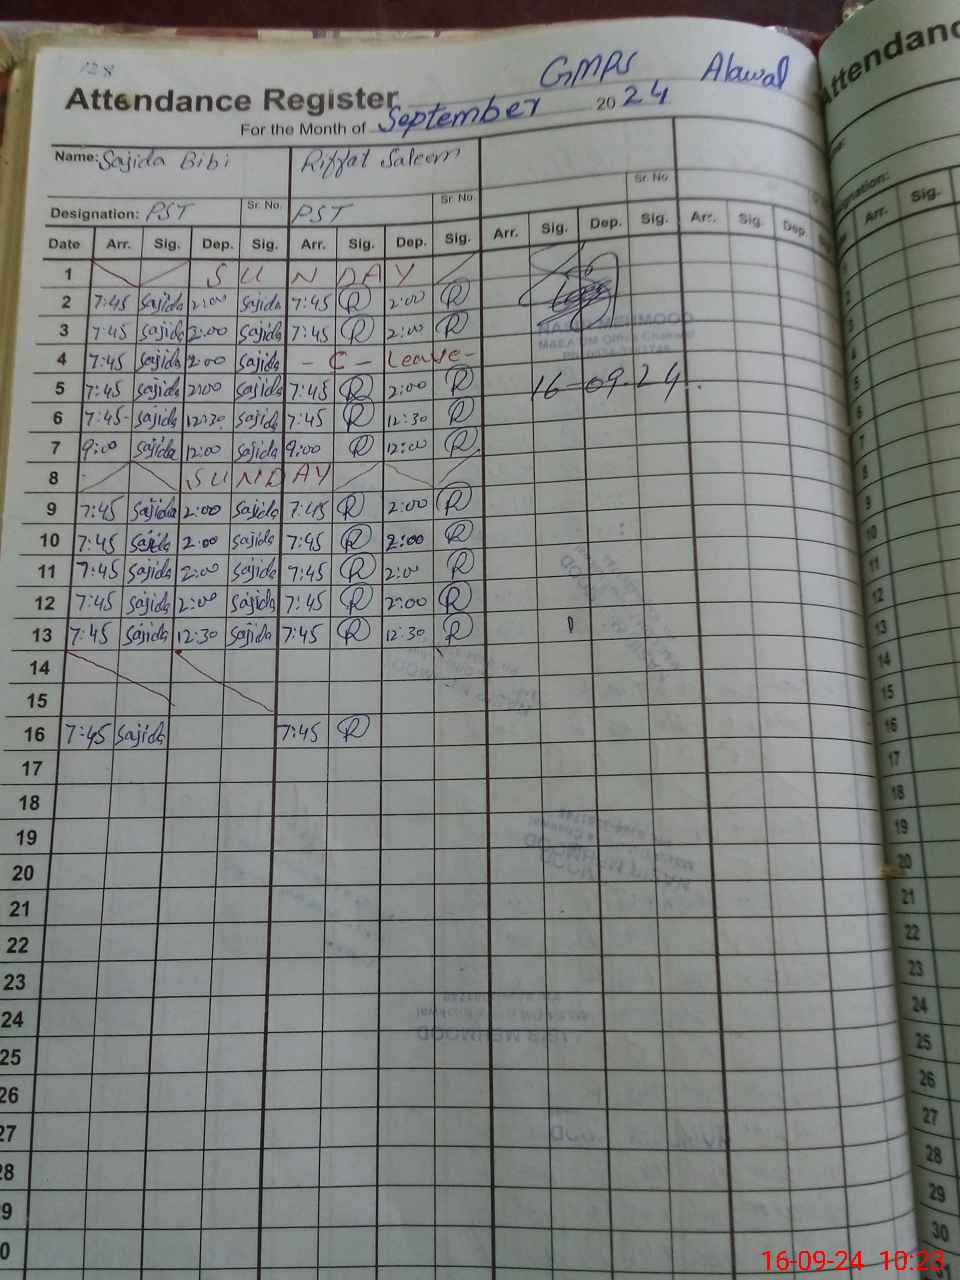 128
GMPS Alawal
Attendance Register
For the Month of September 2024
Name: Sajida Bibi Riffat Saleem
Sr. No. Sr. No. Sr. No.
Designation: PST PST
Date Arr. Sig. Dep. Sig. Arr. Sig. Dep. Sig. Arr. Sig. Dep. Sig. Arr. Sig. Dep.
1 SUNDAY
2 7:45 Sajida 2:00 Sajida 7:45 R 2:00 R
3 7:45 Sajida 2:00 Sajida 7:45 R 2:00 R
4 7:45 Sajida 2:00 Sajida - C - Leave -
5 7:45 Sajida 2:00 Sajida 7:45 R 2:00 R 16-09-24.
6 7:45 Sajida 12:30 Sajida 7:45 R 12:30 R
7 9:00 Sajida 12:00 Sajida 9:00 R 12:00 R
8 SUNDAY
9 7:45 Sajida 2:00 Sajida 7:45 R 2:00 R
10 7:45 Sajida 2:00 Sajida 7:45 R 2:00 R
11 7:45 Sajida 2:00 Sajida 7:45 R 2:00 R
12 7:45 Sajida 2:00 Sajida 7:45 R 2:00 R
13 7:45 Sajida 12:30 Sajida 7:45 R 12:30 R
14
15
16 7:45 Sajida 7:45 R
17
18
19
20
21
22
23
24
25
26
27
28
29
Arr. Sig.
5
6
7
8
9
10
11
12
13
14
15
16
17
18
19
20
21
22
23
24
25
26
27
28
29
30
16-09-24 10:23